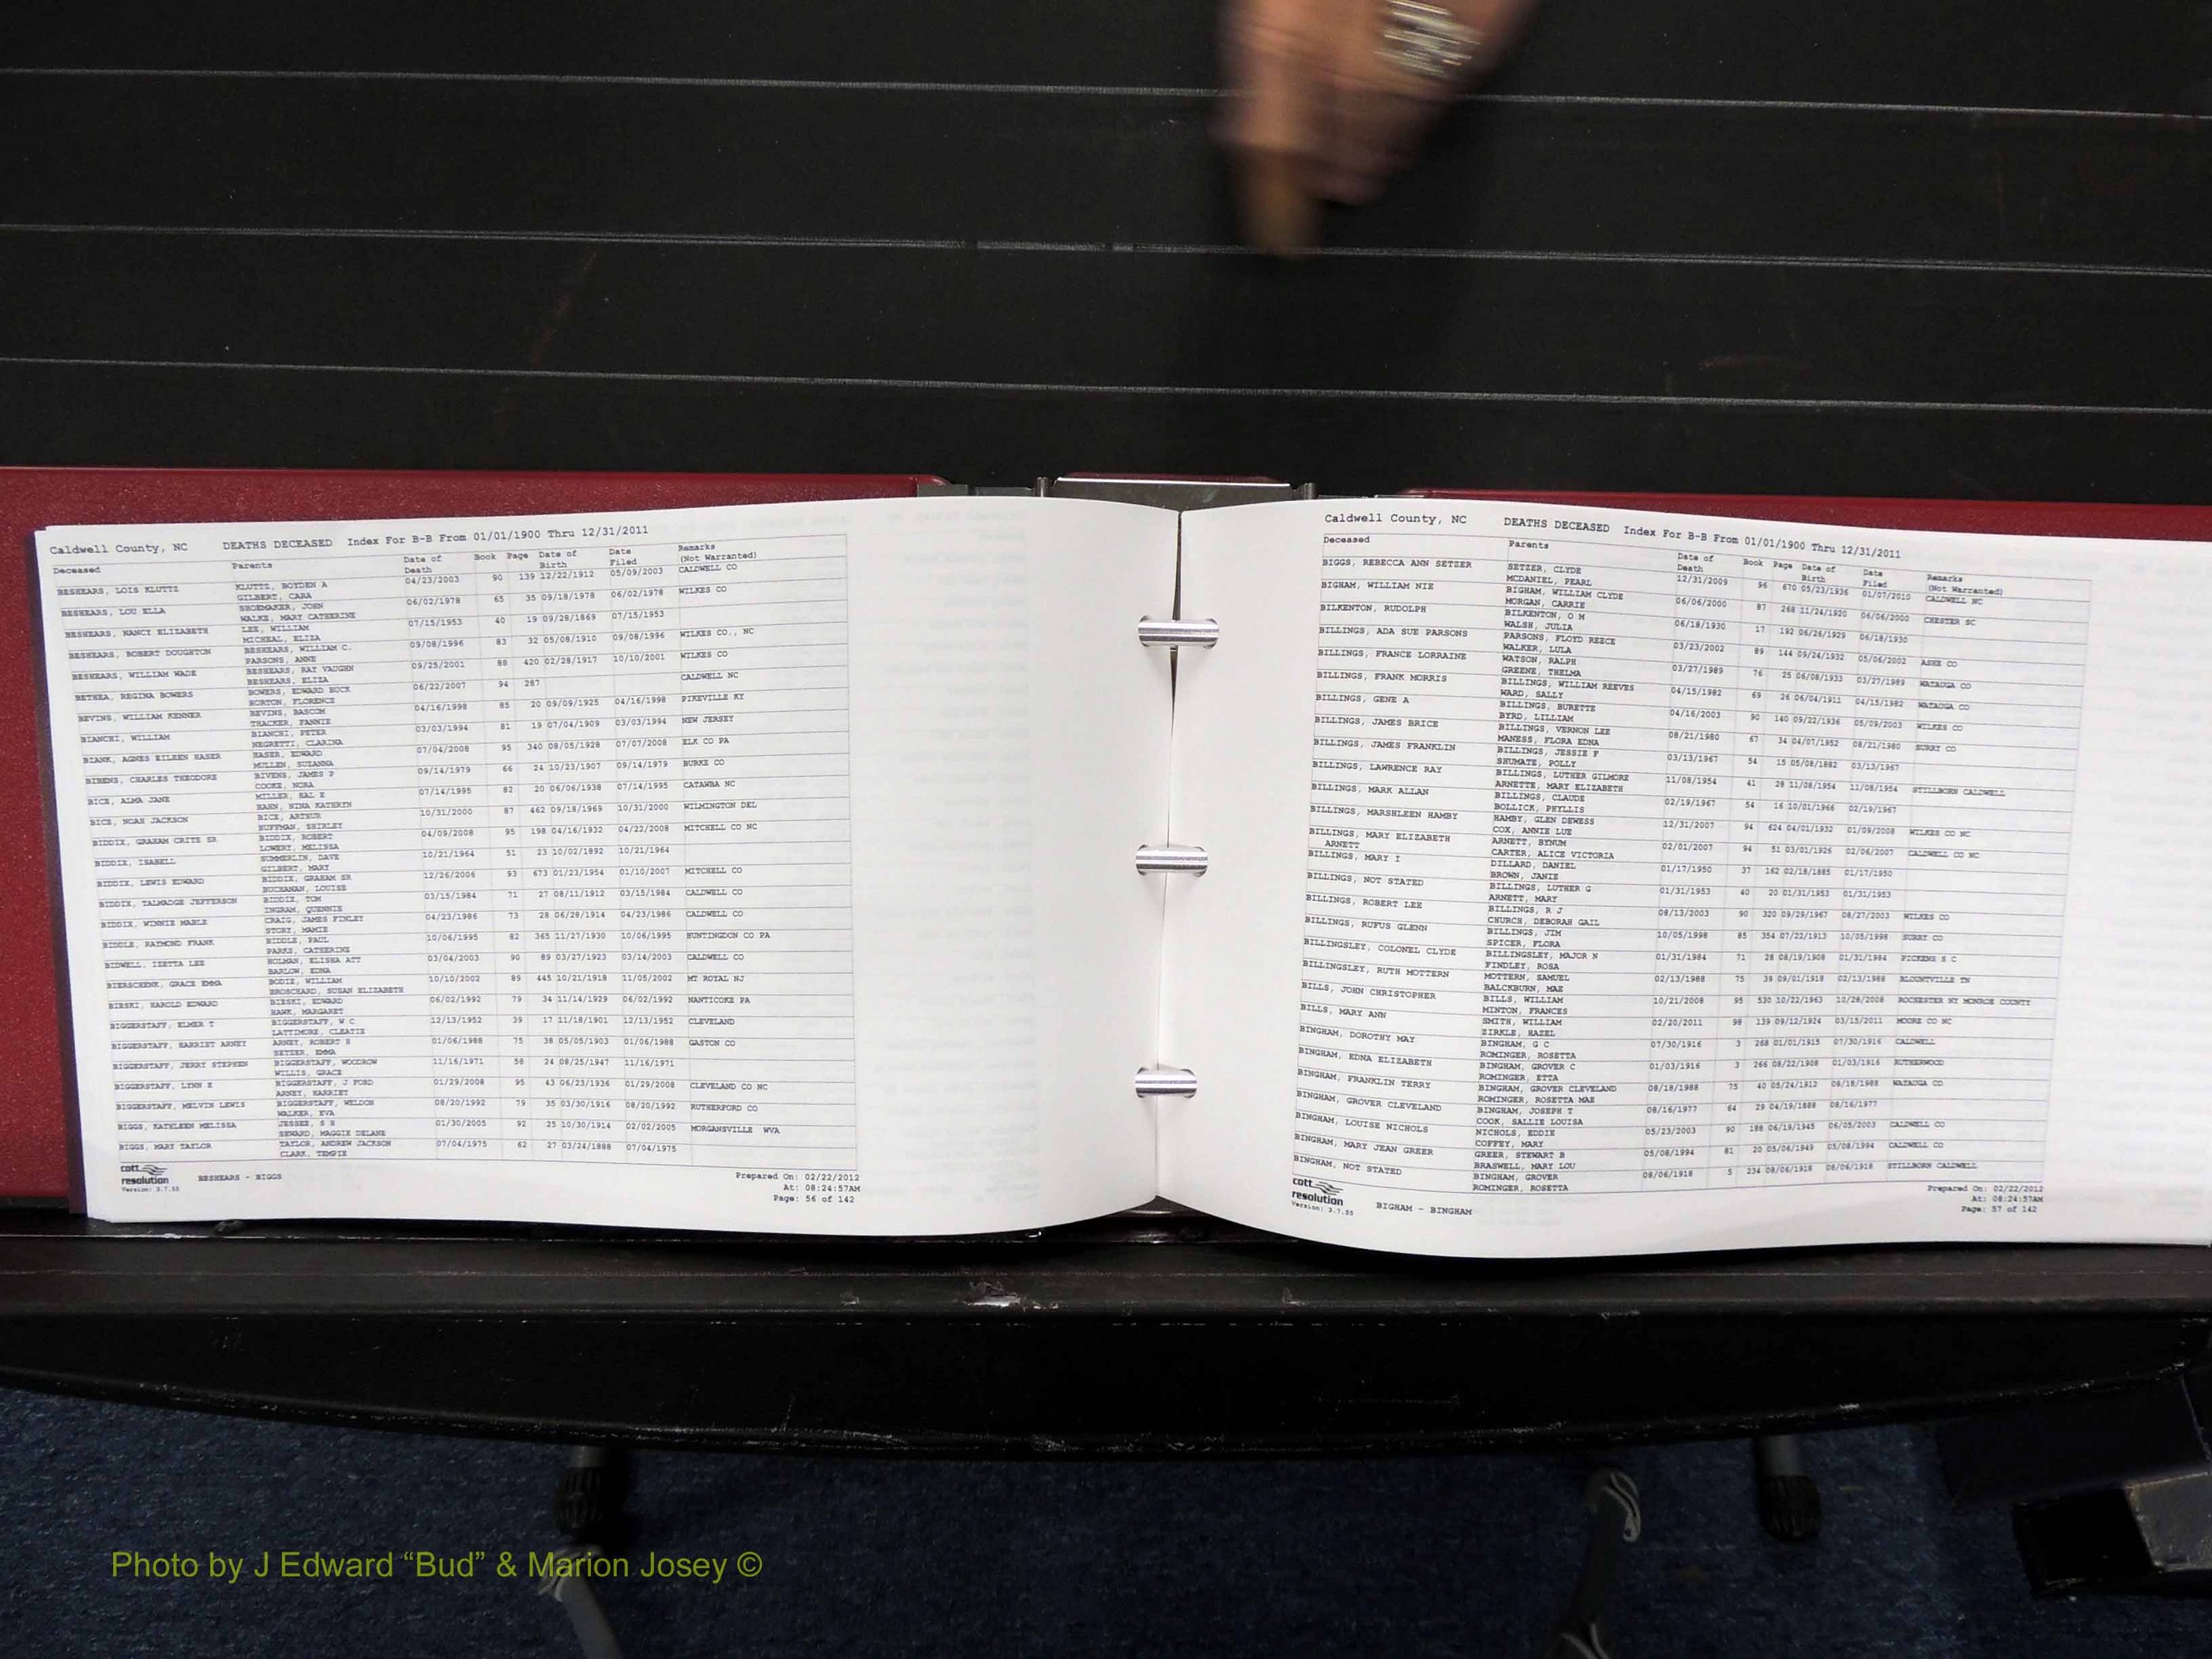 Caldwell County, NC DEATHS DECEASED Index For B-B From 01/01/1900 Thru 12/31/2011
Deceased Parents Date of Death Book Page Date of Birth Date Filed Remarks (Not Warranted)
BESHEARS, LOIS KLUTTZ KLUTTZ, BOYDEN A 04/23/2003 90 139 12/22/1912 05/09/2003 CALDWELL CO
GILBERT, CARA
BESHEARS, LOU ELLA SHOEMAKER, JOHN 06/02/1978 65 35 09/18/1978 06/02/1978 WILKES CO
WALKE, MARY CATHERINE
BESHEARS, NANCY ELIZABETH LEE, WILLIAM 07/15/1953 40 19 09/28/1869 07/15/1953
MICHEAL, ELIZA
BESHEARS, ROBERT DOUGHTON BESHEARS, WILLIAM C. 09/08/1996 83 32 05/08/1910 09/08/1996 WILKES CO., NC
PARSONS, ANNE
BESHEARS, WILLIAM WADE BESHEARS, RAY VAUGHN 09/25/2001 88 420 02/28/1917 10/10/2001 WILKES CO
BESHEARS, ELIZA
BETHEA, REGINA BOWERS BOWERS, EDWARD BUCK 06/22/2007 94 287 CALDWELL NC
HORTON, FLORENCE
BEVINS, WILLIAM KENNER BEVINS, BASCOM 04/16/1998 85 20 09/09/1925 04/16/1998 PIKEVILLE KY
THACKER, FANNIE
BIANCHI, WILLIAM BIANCHI, PETER 03/03/1994 81 19 07/04/1909 03/03/1994 NEW JERSEY
NEGRETTI, CLARINA
BIANK, AGNES EILEEN HASER HASER, EDWARD 07/04/2008 95 340 08/05/1928 07/07/2008 ELK CO PA
MULLEN, SUZANNA
BIBENS, CHARLES THEODORE BIVENS, JAMES P 09/14/1979 66 24 10/23/1907 09/14/1979 BURKE CO
COOKE, NORA
BICE, ALMA JANE MILLER, HAL Z 07/14/1995 82 20 06/06/1938 07/14/1995 CATAWBA NC
HAHN, NINA KATHRYN
BICE, NOAH JACKSON BICE, ARTHUR 10/31/2000 87 462 09/18/1969 10/31/2000 WILMINGTON DEL
HUFFMAN, SHIRLEY
BIDDIX, GRAHAM CRITE SR BIDDIX, ROBERT 04/09/2008 95 198 04/16/1932 04/22/2008 MITCHELL CO NC
LOWERY, MELISSA
BIDDIX, ISABELL SUMMERLIN, DAVE 10/21/1964 51 23 10/02/1892 10/21/1964
GILBERT, MARY
BIDDIX, LEWIS EDWARD BIDDIX, GRAHAM SR 12/26/2006 93 673 01/23/1954 01/10/2007 MITCHELL CO
BUCHANAN, LOUISE
BIDDIX, TALMADGE JEFFERSON BIDDIX, TOM 03/15/1984 71 27 08/11/1912 03/15/1984 CALDWELL CO
INGRAM, QUENNIE
BIDDIX, WINNIE MABLE CRAIG, JAMES FINLEY 04/23/1986 73 28 06/28/1914 04/23/1986 CALDWELL CO
STORY, MAMIE
BIDDLE, RAYMOND FRANK BIDDLE, PAUL 10/06/1995 82 365 11/27/1930 10/06/1995 HUNTINGDON CO PA
PARKS, CATHERINE
BIDWELL, IZETTA LEE HOLMAN, ELISHA ATT 03/04/2003 90 89 03/27/1923 03/14/2003 CALDWELL CO
BARLOW, EDNA
BIERSCHENK, GRACE EMMA BODIE, WILLIAM 10/10/2002 89 445 10/21/1918 11/05/2002 MT ROYAL NJ
BROSCHARD, SUSAN ELIZABETH
BIESKI, HAROLD EDWARD BIESKI, EDWARD 06/02/1992 79 34 11/14/1929 06/02/1992 NANTICOKE PA
HAWK, MARGARET
BIGGERSTAFF, ELMER T BIGGERSTAFF, W C 12/13/1952 39 17 11/18/1901 12/13/1952 CLEVELAND
LATTIMORE, CLEATIE
BIGGERSTAFF, HARRIET ARNEY ARNEY, ROBERT H 01/06/1988 75 38 05/05/1903 01/06/1988 GASTON CO
SETZER, EMMA
BIGGERSTAFF, JERRY STEPHEN BIGGERSTAFF, WOODROW 11/16/1971 58 24 08/25/1947 11/16/1971
WILLIS, GRACE
BIGGERSTAFF, LINN E BIGGERSTAFF, J FORD 01/29/2008 95 43 06/23/1936 01/29/2008 CLEVELAND CO NC
ARNEY, HARRIET
BIGGERSTAFF, MELVIN LEWIS BIGGERSTAFF, WELDON 08/20/1992 79 35 03/30/1916 08/20/1992 RUTHERFORD CO
WALKER, EVA
BIGGS, KATHLEEN MELISSA JESSEE, S H 01/30/2005 92 25 10/30/1914 02/02/2005 MORGANSVILLE WVA
SEWARD, MAGGIE DELANE
BIGGS, MARY TAYLOR TAYLOR, ANDREW JACKSON 07/04/1975 62 27 03/24/1888 07/04/1975
CLARK, TEMPIE
cott resolution
Version: 3.7.55
BESHEARS - BIGGS
Prepared On: 02/22/2012
At: 08:24:57AM
Page: 56 of 142
Caldwell County, NC DEATHS DECEASED Index For B-B From 01/01/1900 Thru 12/31/2011
Deceased Parents Date of Death Book Page Date of Birth Date Filed Remarks (Not Warranted)
BIGGS, REBECCA ANN SETZER SETZER, CLYDE 12/31/2009 96 670 05/23/1936 01/07/2010 CALDWELL NC
MCDANIEL, PEARL
BIGHAM, WILLIAM NIE BIGHAM, WILLIAM CLYDE 06/06/2000 87 268 11/24/1920 06/06/2000 CHESTER SC
MORGAN, CARRIE
BILKENTON, RUDOLPH BILKENTON, O H 06/18/1930 17 192 06/26/1929 06/18/1930
WALSH, JULIA
BILLINGS, ADA SUE PARSONS PARSONS, FLOYD REECE 03/23/2002 89 144 09/24/1932 05/06/2002 ASHE CO
WALKER, LULA
BILLINGS, FRANCE LORRAINE WATSON, RALPH 03/27/1989 76 25 06/08/1933 03/27/1989 WATAUGA CO
GREENE, THELMA
BILLINGS, FRANK MORRIS BILLINGS, WILLIAM REEVES 04/15/1982 69 26 06/04/1911 04/15/1982 WATAUGA CO
WARD, SALLY
BILLINGS, GENE A BILLINGS, BURETTE 04/16/2003 90 140 09/22/1936 05/09/2003 WILKES CO
BYRD, LILLIAM
BILLINGS, JAMES BRICE BILLINGS, VERNON LEE 08/21/1980 67 34 04/07/1952 08/21/1980 SURRY CO
MANESS, FLORA EDNA
BILLINGS, JAMES FRANKLIN BILLINGS, JESSIE F 03/13/1967 54 15 05/08/1882 03/13/1967
SHUMATE, POLLY
BILLINGS, LAWRENCE RAY BILLINGS, LUTHER GILMORE 11/08/1954 41 28 11/08/1954 11/08/1954 STILLBORN CALDWELL
ARNETTE, MARY ELIZABETH
BILLINGS, MARK ALLAN BILLINGS, CLAUDE 02/19/1967 54 16 10/01/1966 02/19/1967
BOLLICK, PHYLLIS
BILLINGS, MARSHLEEN HAMBY HAMBY, GLEN DEWESS 12/31/2007 94 624 04/01/1932 01/09/2008 WILKES CO NC
COX, ANNIE LUE
BILLINGS, MARY ELIZABETH ARNETT ARNETT, BYNUM 02/01/2007 94 51 03/01/1926 02/06/2007 CALDWELL CO NC
CARTER, ALICE VICTORIA
BILLINGS, MARY I DILLARD, DANIEL 01/17/1950 37 162 02/18/1885 01/17/1950
BROWN, JANIE
BILLINGS, NOT STATED BILLINGS, LUTHER G 01/31/1953 40 20 01/31/1953 01/31/1953
ARNETT, MARY
BILLINGS, ROBERT LEE BILLINGS, R J 08/13/2003 90 320 09/29/1967 08/27/2003 WILKES CO
CHURCH, DEBORAH GAIL
BILLINGS, RUFUS GLENN BILLINGS, JIM 10/05/1998 85 354 07/22/1913 10/05/1998 SURRY CO
SPICER, FLORA
BILLINGSLEY, COLONEL CLYDE BILLINGSLEY, MAJOR N 01/31/1984 71 28 08/19/1908 01/31/1984 PICKENS S C
FINDLEY, ROSA
BILLINGSLEY, RUTH MOTTERN MOTTERN, SAMUEL 02/13/1988 75 39 09/01/1918 02/13/1988 BLOUNTVILLE TN
BALCKBURN, MAE
BILLS, JOHN CHRISTOPHER BILLS, WILLIAM 10/21/2008 95 530 10/22/1963 10/28/2008 ROCHESTER NY MONROE COUNTY
MINTON, FRANCES
BILLS, MARY ANN SMITH, WILLIAM 02/20/2011 98 139 09/12/1924 03/15/2011 MOORE CO NC
ZIRKLE, HAZEL
BINGHAM, DOROTHY MAY BINGHAM, G C 07/30/1916 3 268 01/01/1915 07/30/1916 CALDWELL
ROMINGER, ROSETTA
BINGHAM, EDNA ELIZABETH BINGHAM, GROVER C 01/03/1916 3 266 08/22/1908 01/03/1916 RUTHERWOOD
ROMINGER, ETTA
BINGHAM, FRANKLIN TERRY BINGHAM, GROVER CLEVELAND 08/18/1988 75 40 05/24/1912 08/18/1988 WATAUGA CO
ROMINGER, ROSETTA MAE
BINGHAM, GROVER CLEVELAND BINGHAM, JOSEPH T 08/16/1977 64 29 04/19/1888 08/16/1977
COOK, SALLIE LOUISA
BINGHAM, LOUISE NICHOLS NICHOLS, EDDIE 05/23/2003 90 188 06/19/1945 06/05/2003 CALDWELL CO
COFFEY, MARY
BINGHAM, MARY JEAN GREER GREER, STEWART B 05/08/1994 81 20 05/06/1949 05/08/1994 CALDWELL CO
BRASWELL, MARY LOU
BINGHAM, NOT STATED BINGHAM, GROVER 08/06/1918 5 234 08/06/1918 08/06/1918 STILLBORN CALDWELL
ROMINGER, ROSETTA
cott resolution
Version: 3.7.55
BIGHAM - BINGHAM
Prepared On: 02/22/2012
At: 08:24:57AM
Page: 57 of 142
Photo by J Edward “Bud” & Marion Josey ©